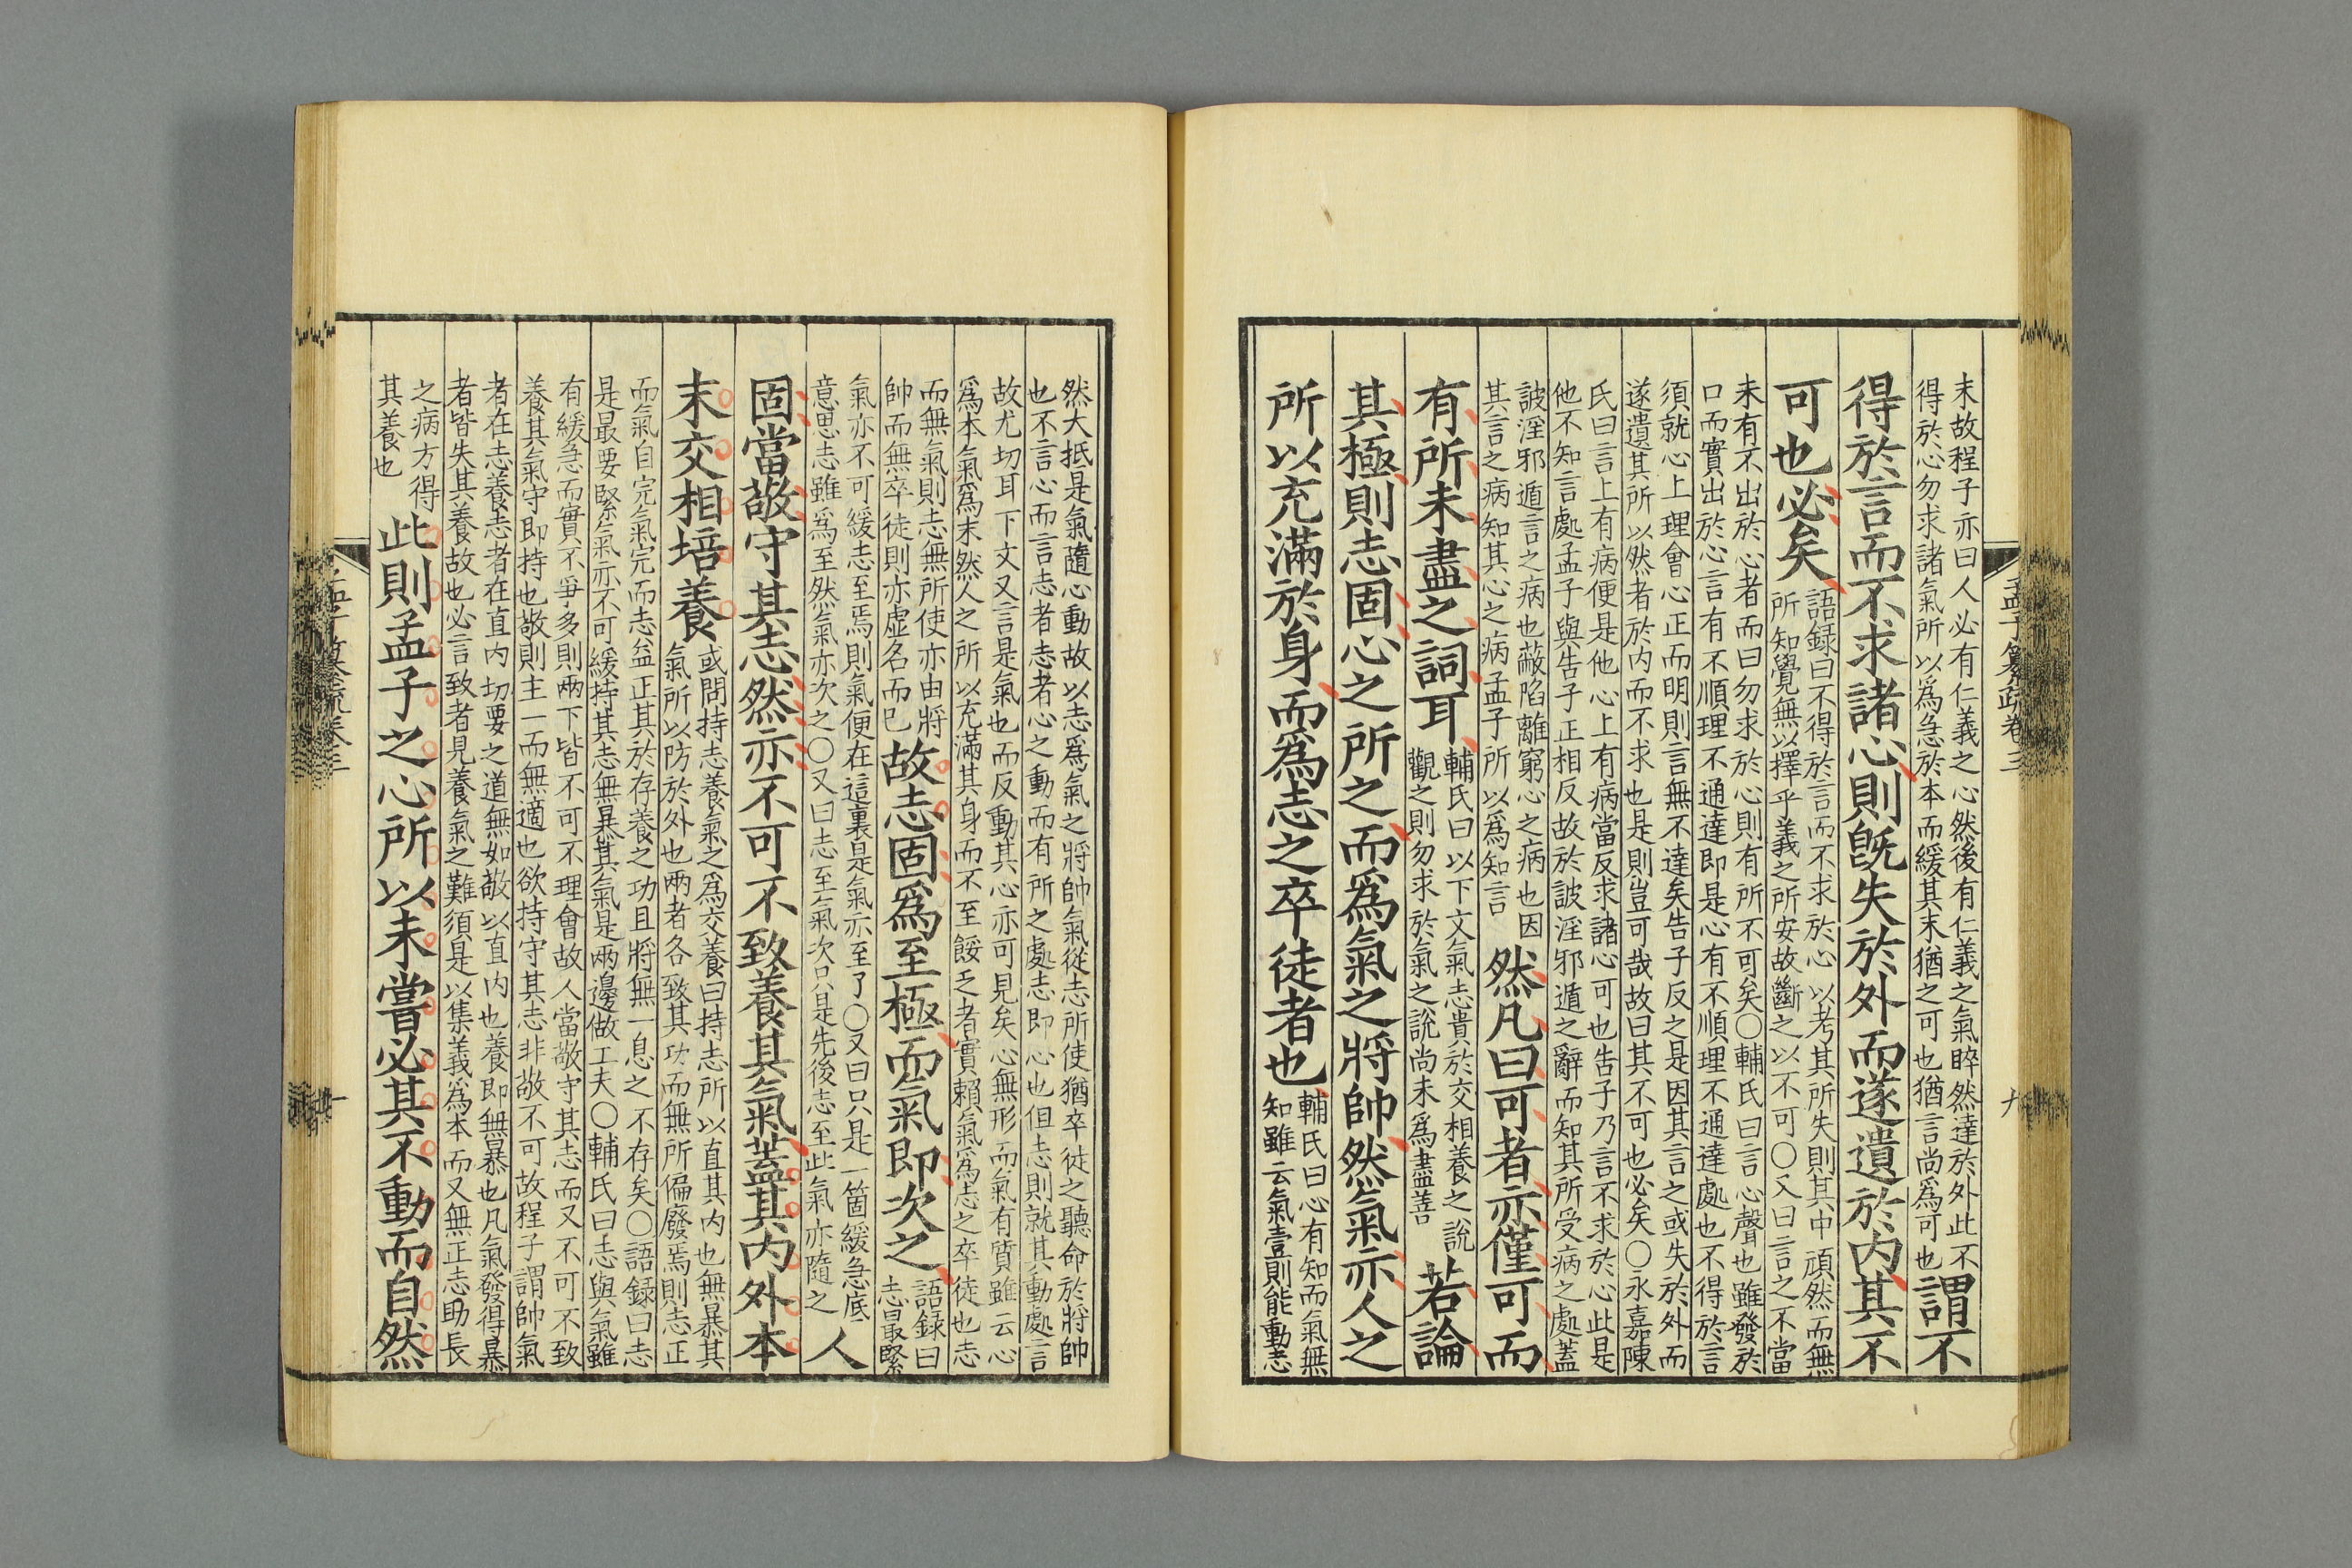 末故程子亦曰人必有仁義之心然後有仁義之氣睟然達於外此不
得於心勿求諸氣所以為急於本而緩其末猶之可也猶言尚為可也
謂不
得於言而不求諸心則旣失於外而遂遺於内其不
可也必矣
語録曰不得於言而不求於心以考其所失則其中頑然而無
所知覺無以擇乎義之所安故斷之以不可〇又曰言之不當
未有不出於心者而曰勿求於心則有所不可矣〇輔氏曰言心聲也雖發於
口而實出於心言有不順理不通達即是心有不順理不通達處也不得於言
須就心上理會心正而明則言無不達矣告子反之是因其言之或失於外而
遂遺其所以然者於内而不求也是則豈可哉故曰其不可也必矣〇永嘉陳
氏曰言上有病便是他心上有病當反求諸心可也告子乃言不求於心此是
他不知言處孟子與告子正相反故於詖淫邪遁之辭而知其所受病之處蓋
詖淫邪遁言之病也蔽陷離窮心之病也因
其言之病知其心之病孟子所以為知言
然凡曰可者亦僅可而
有所未盡之詞耳
輔氏曰以下文氣志貴於交相養之說
觀之則勿求於氣之說尚未為盡善
若論
其極則志固心之所之而為氣之將帥然氣亦人之
所以充滿於身而為志之卒徒者也
輔氏曰心有知而氣無
知雖云氣壹則能動志
孟子纂疏卷三
九
然大抵是氣隨心動故以志為氣之將帥氣從志所使猶卒徒之聽命於將帥
也不言心而言志者志者心之動而有所之處志即心也但志則就其動處言
故尤切耳下文又言是氣也而反動其心亦可見矣心無形而氣有質雖云心
為本氣為末然人之所以充滿其身而不至餒乏者實賴氣為志之卒徒也志
而無氣則志無所使亦由將
帥而無卒徒則亦虛名而已
故志固為至極而氣即次之
語録曰
志最緊
氣亦不可緩志至焉則氣便在這裏是氣亦至了〇又曰只是一箇緩急底
意思志雖為至然氣亦次之〇又曰志至氣次只是先後志至此氣亦隨之
人
固當敬守其志然亦不可不致養其氣葢其内外本
末交相培養
或問持志養氣之為交養曰持志所以直其内也無暴其
氣所以防於外也兩者各致其功而無所偏廢焉則志正
而氣自完氣完而志益正其於存養之功且將無一息之不存矣〇語録曰志
是最要緊氣亦不可緩持其志無暴其氣是兩邊做工夫〇輔氏曰志與氣雖
有緩急而實不爭多則兩下皆不可不理會故人當敬守其志而又不可不致
養其氣守即持也敬則主一而無適也欲持守其志非敬不可故程子謂帥氣
者在志養志者在直内切要之道無如敬以直内也養即無暴也凡氣發得暴
者皆失其養故也必言致者見養氣之難須是以集義為本而又無正忘助長
之病方得
其養也
此則孟子之心所以未嘗必其不動而自然